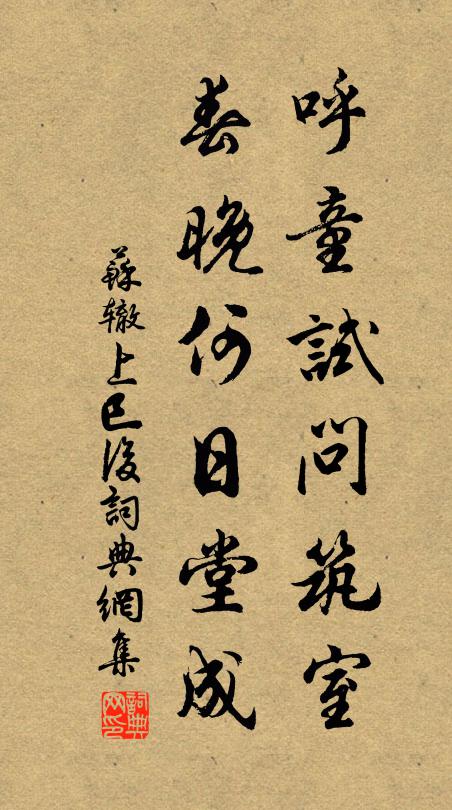 呼童試問筑室
春晚何日堂成
蘇辙上巳後詞典網集
詞典网印